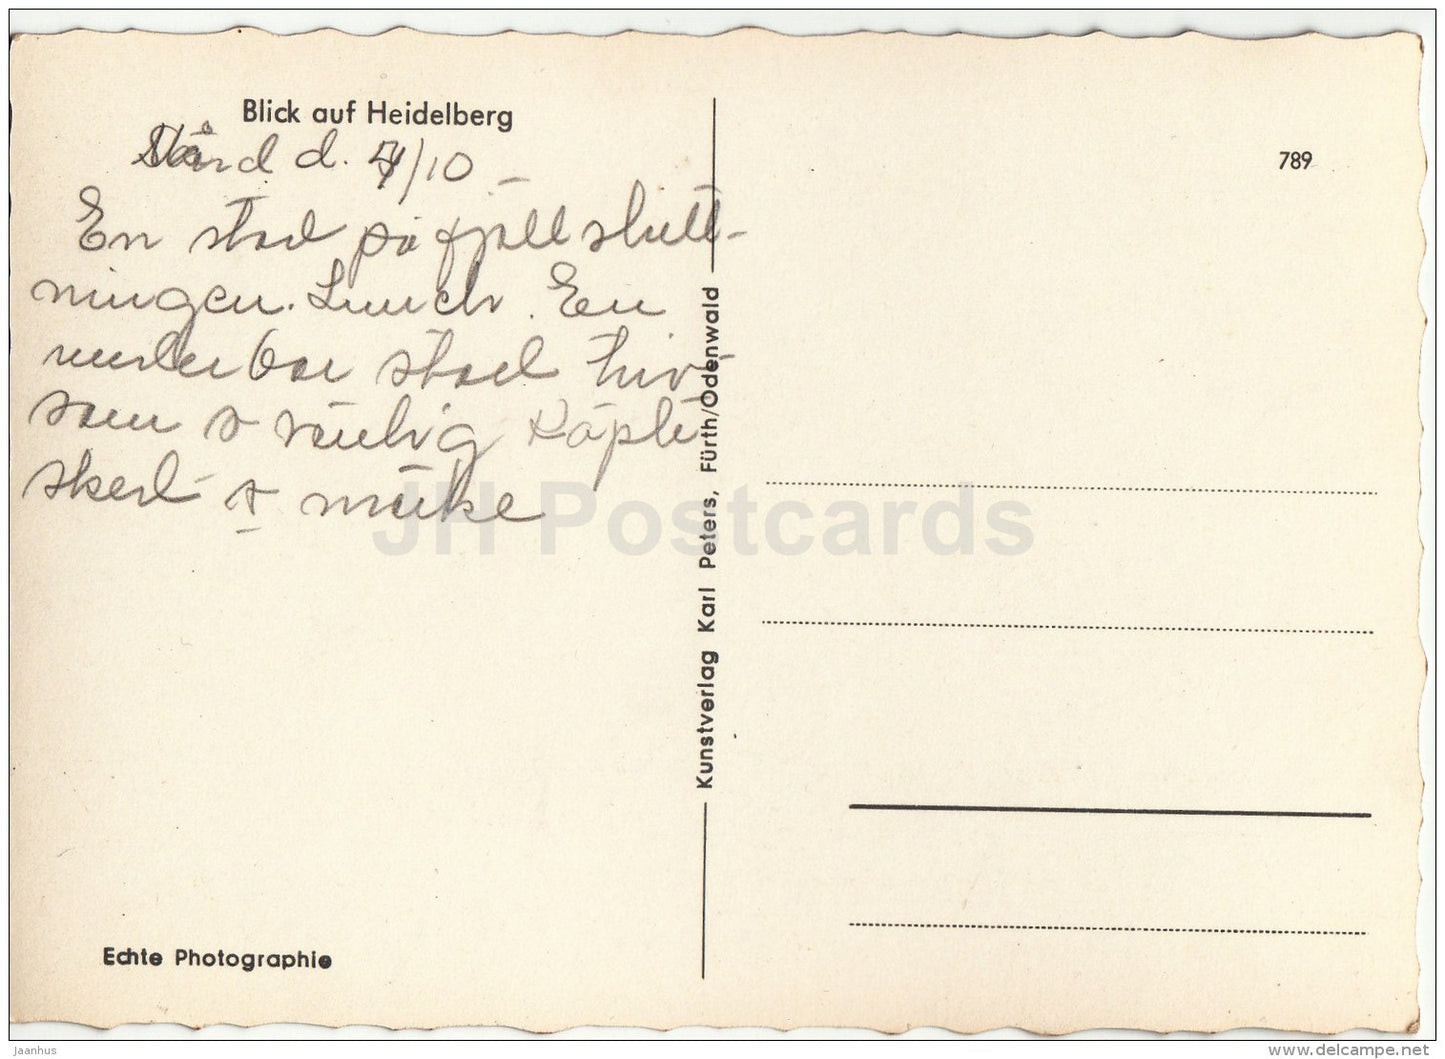 Blick auf Heidelberg
d. 4/10
789
En stad på fjällslutt-
ningen. Lunch. En
underbar stad
som
sked
Kunstverlag Karl Peters, Fürth/Odenwald
JH Postcards
Echte Photographie
jaanhus
www.delcampe.net